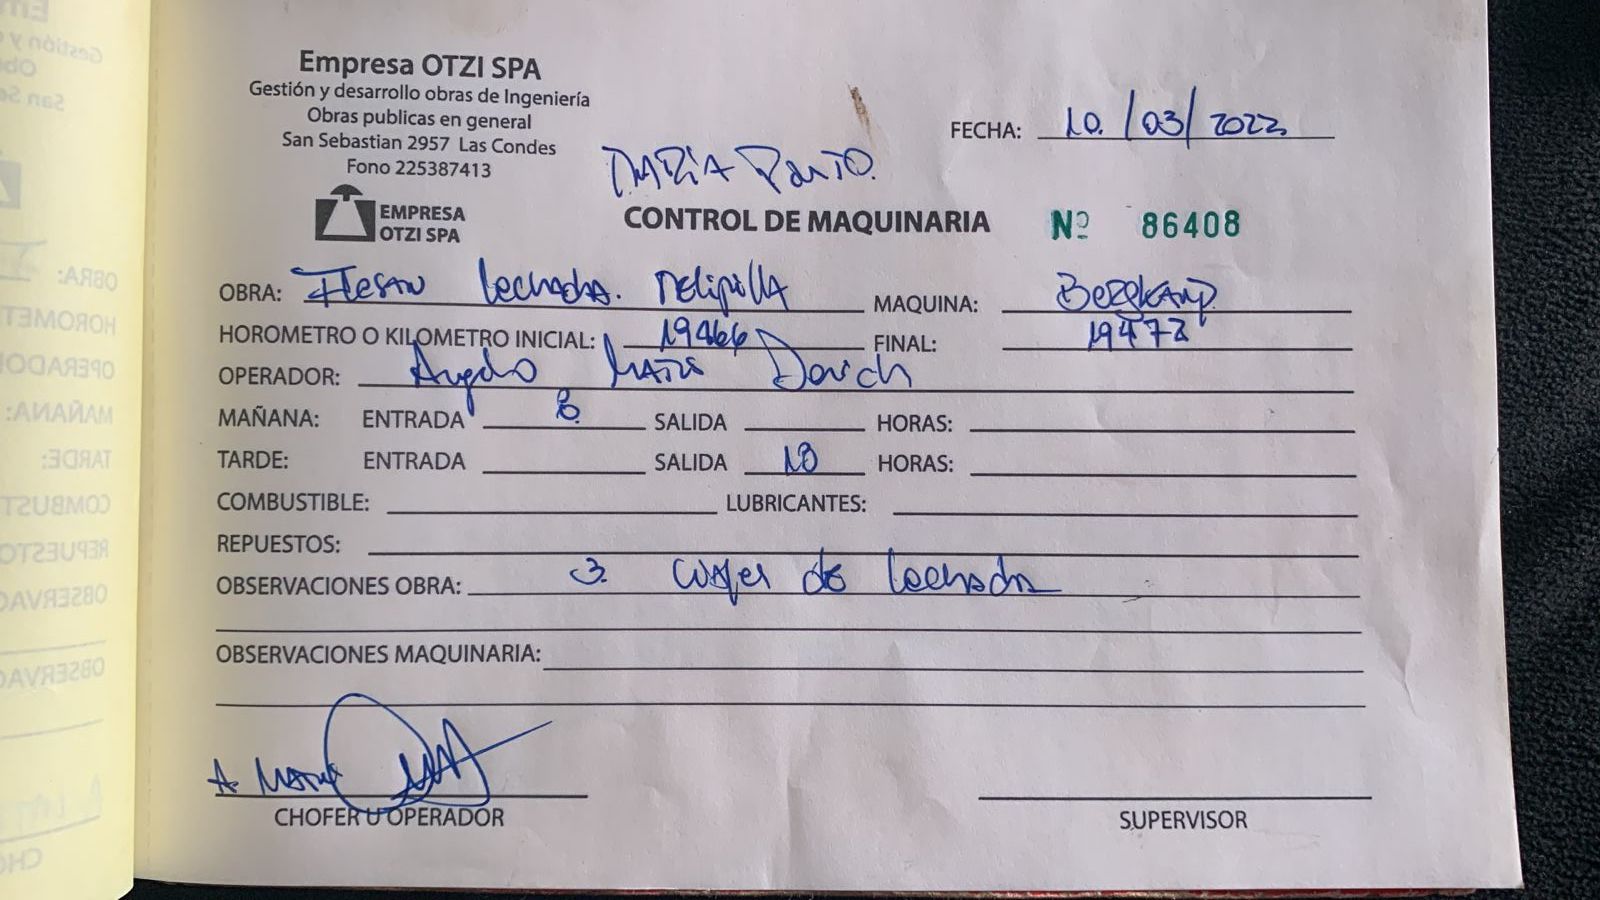 Empresa OTZI SPA
Gestión y desarrollo obras de Ingeniería
Obras publicas en general
San Sebastian 2957 Las Condes
Fono 225387413
EMPRESA
OTZI SPA
FECHA: 10/03/2022
MARIA PINTO.
CONTROL DE MAQUINARIA Nº 86408
OBRA: lechada. Melipilla MAQUINA: BERGKAMP.
HOROMETRO O KILOMETRO INICIAL: 19466 FINAL: 19472
OPERADOR: Angelo
MAÑANA: ENTRADA 8 SALIDA HORAS:
TARDE: ENTRADA SALIDA 18 HORAS:
COMBUSTIBLE: LUBRICANTES:
REPUESTOS:
OBSERVACIONES OBRA: 3. de lechada
OBSERVACIONES MAQUINARIA:
CHOFER U OPERADOR SUPERVISOR